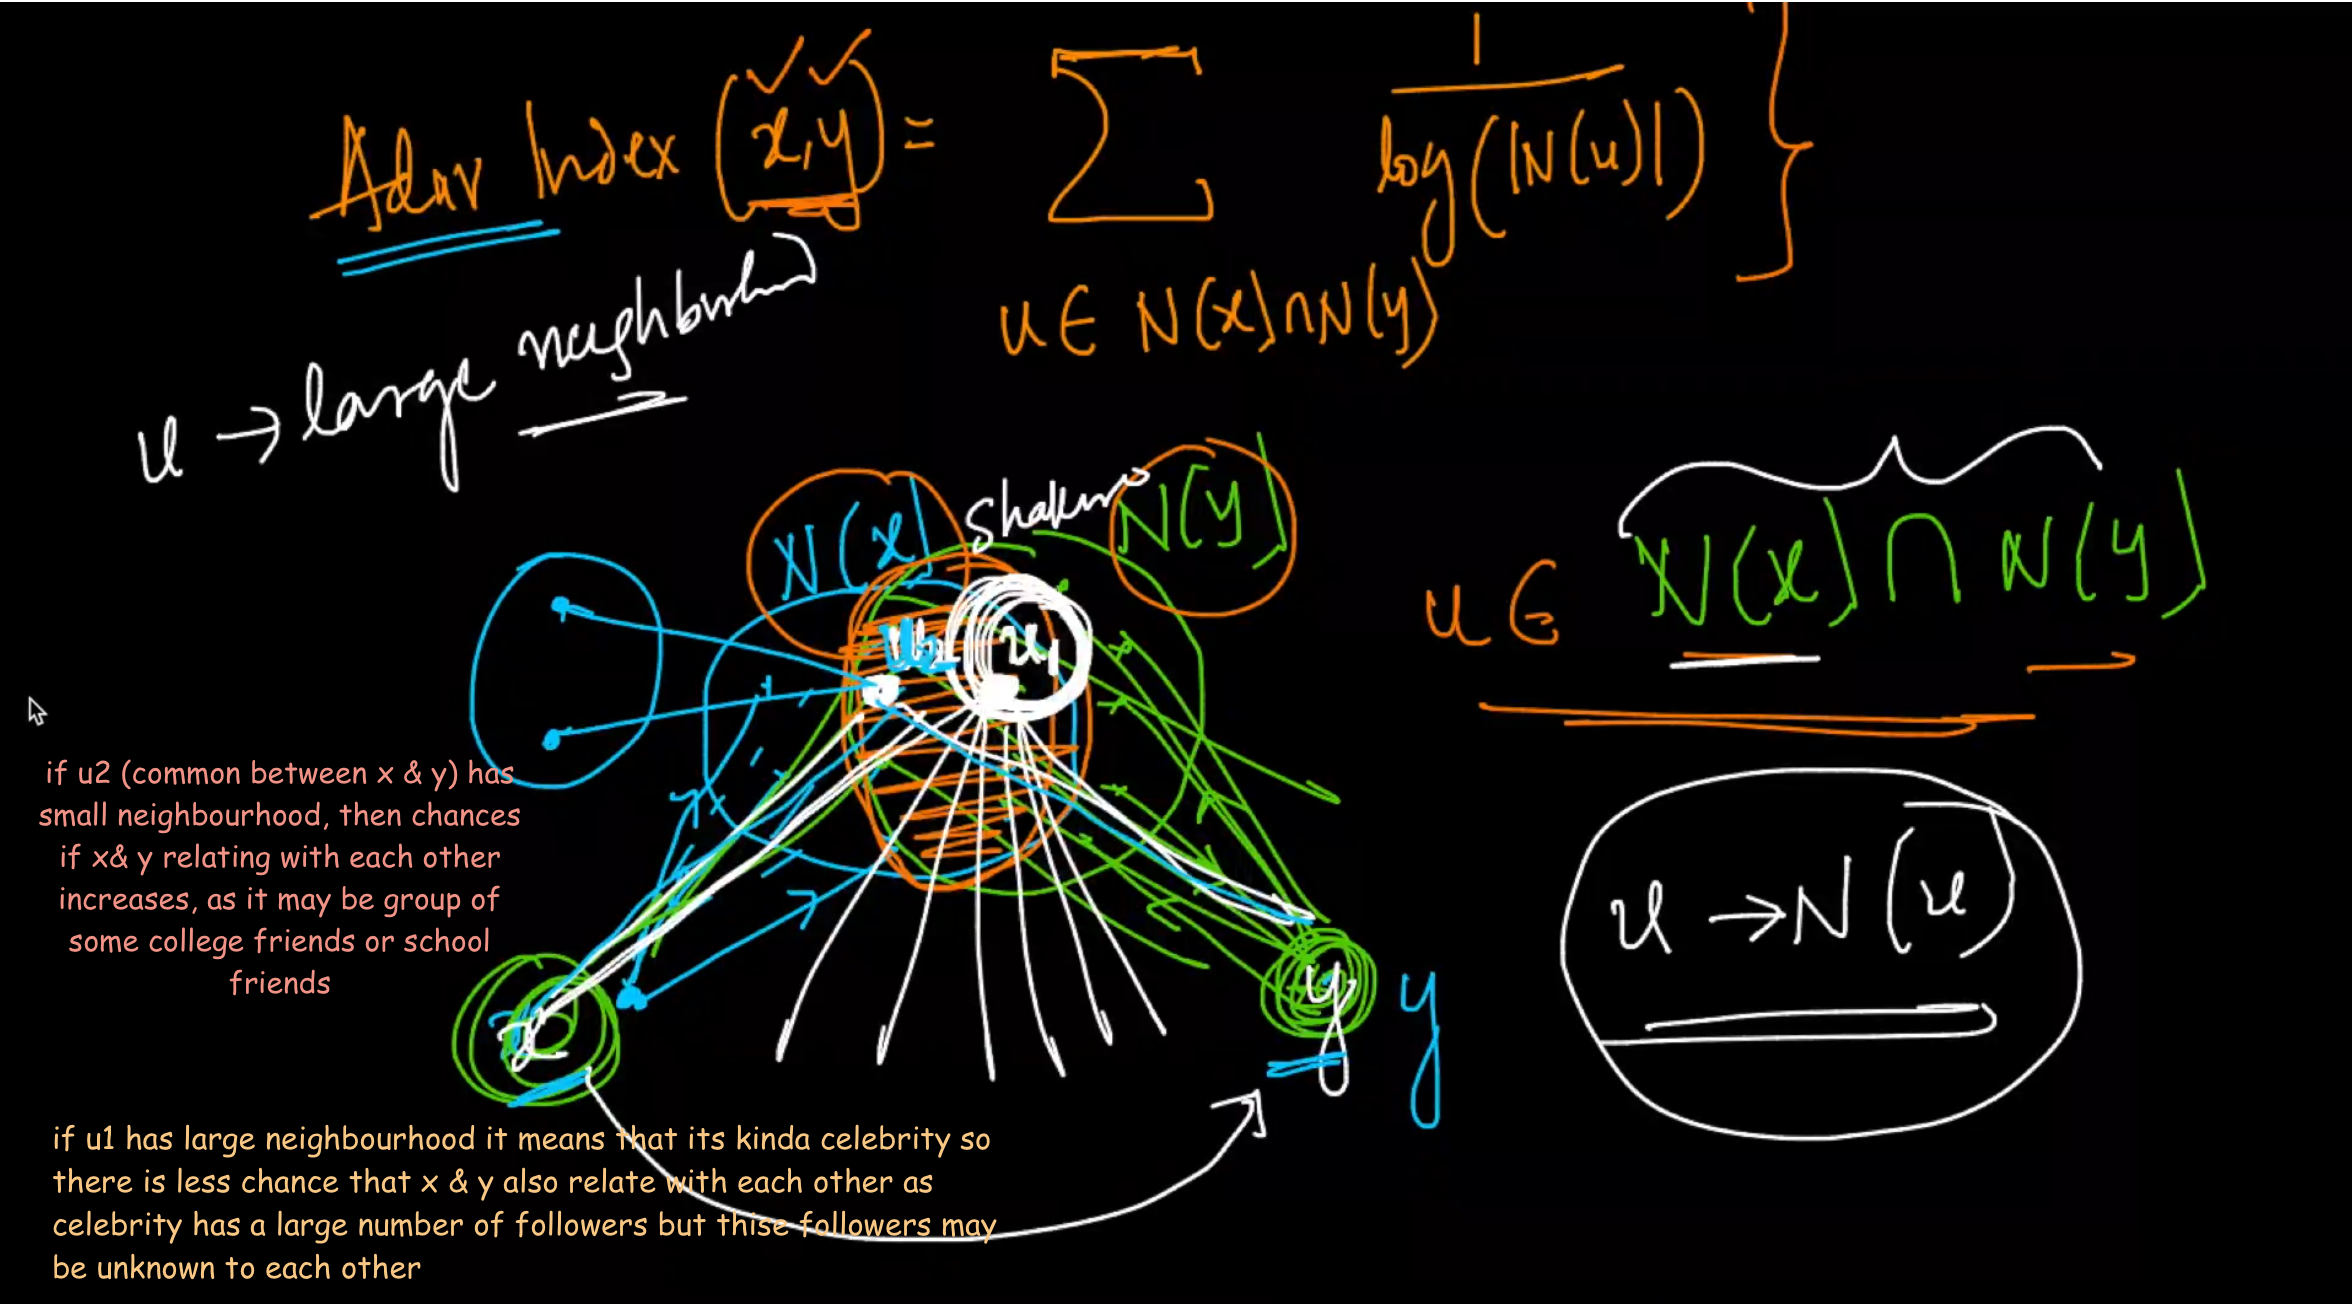 Adar Index (x,y) = Σ 1
log(|N(u)|)
u ∈ N(x) ∩ N(y)
u → large neighbourhood
N(x)
N(y)
u1
u ∈ N(x) ∩ N(y)
u → N(u)
x
y
y
if u2 (common between x & y) has
small neighbourhood, then chances
if x& y relating with each other
increases, as it may be group of
some college friends or school
friends
if u1 has large neighbourhood it means that its kinda celebrity so
there is less chance that x & y also relate with each other as
celebrity has a large number of followers but thise followers may
be unknown to each other